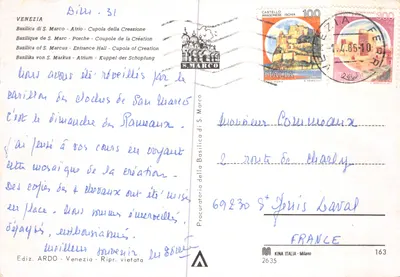 Dim. 31
VENEZIA
Basilica di S. Marco - Atrio - Cupola della Creazione
Basilique de S. Marc - Porche - Coupole de la Création
Basilica of S. Marcus - Entrance Hall - Cupola of Creation
Basilika von S. Markus - Atium - Kuppel der Schöpfung
S. MARCO
Nous avons été réveillés par le
carillon des cloches de San Marco
c'est le dimanche des Rameaux.
J'ai pensé à vos cours en voyant
cette mosaïque de la création.
Des copies des 4 chevaux ont été mises
en place. Nous sommes émerveillés.
enthousiasmés.
Meilleur souvenir
Ediz. ARDO - Venezia - Ripr. vietata
Procuratoria della Basilica di S. Marco
100
200
VENEZIA FERR
1.4.85-10
Monsieur Commeaux
2 route de Charly
69230 St Genis Laval
FRANCE
KINA ITALIA - Milano
2635
163